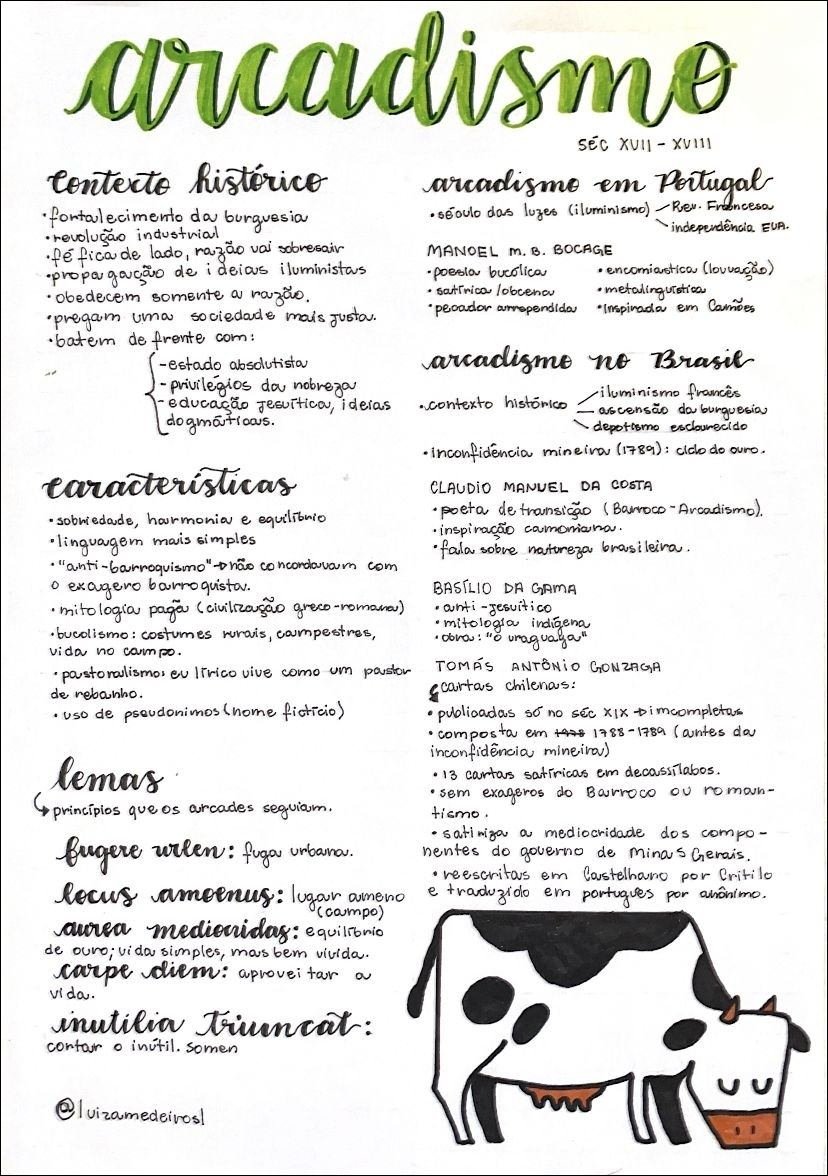 arcadismo
SÉC XVII - XVIII
contexto histórico
•fortalecimento da burguesia
•revolução industrial
•fé fica de lado, razão vai sobressair
•propagação de ideias iluministas
•obedecem somente a razão.
•pregam uma sociedade mais justa.
•batem de frente com:
-estado absolutista
-privilégios da nobreza
-educação jesuítica, ideias
dogmáticas.
características
•sobriedade, harmonia e equilíbrio
•linguagem mais simples
•"anti-barroquismo"→não concordavam com
o exagero barroquista.
•mitologia pagã (civilização greco-romana)
•bucolismo: costumes rurais, campestres,
vida no campo.
•pastoralismo: eu lírico vive como um pastor
de rebanho.
•uso de pseudonimos (nome fictício)
lemas
→princípios que os arcades seguiam.
fugere urlen: fuga urbana.
locus amoenus: lugar ameno
(campo)
aurea mediocridas: equilíbrio
de ouro; vida simples, mas bem vivida.
carpe diem: aproveitar a
vida.
inutilia truncat:
cortar o inútil. somen
@luizamedeirosl
arcadismo em Portugal
•século das luzes (iluminismo) - Rev. Francesa
independência EUA.
MANOEL M. B. BOCAGE
•poesia bucólica
•satírica/obcena
•pecador arrependido
•encomiastica (louvação)
•metalinguística
•Inspirada em Camões
arcadismo no Brasil
•contexto histórico
iluminismo francês
ascensão da burguesia
depotismo esclarecido
•inconfidência mineira (1789): ciclo do ouro.
CLAUDIO MANUEL DA COSTA
•poeta de transição (Barroco-Arcadismo).
•inspiração camoniana.
•fala sobre natureza brasileira.
BASÍLIO DA GAMA
•anti-jesuítico
•mitologia indígena
•obra: "o uraguaya"
TOMÁS ANTÔNIO GONZAGA
cartas chilenas:
•publicadas só no séc XIX →imcompletas
•composta em 1788-1789 (antes da
inconfidência mineira)
•13 cartas satíricas em decassílabos.
•sem exageros do Barroco ou roman-
tismo.
•satiriza a mediocridade dos compo-
nentes do governo de Minas Gerais.
•reescritas em Castelhano por Critilo
e traduzido em português por anônimo.